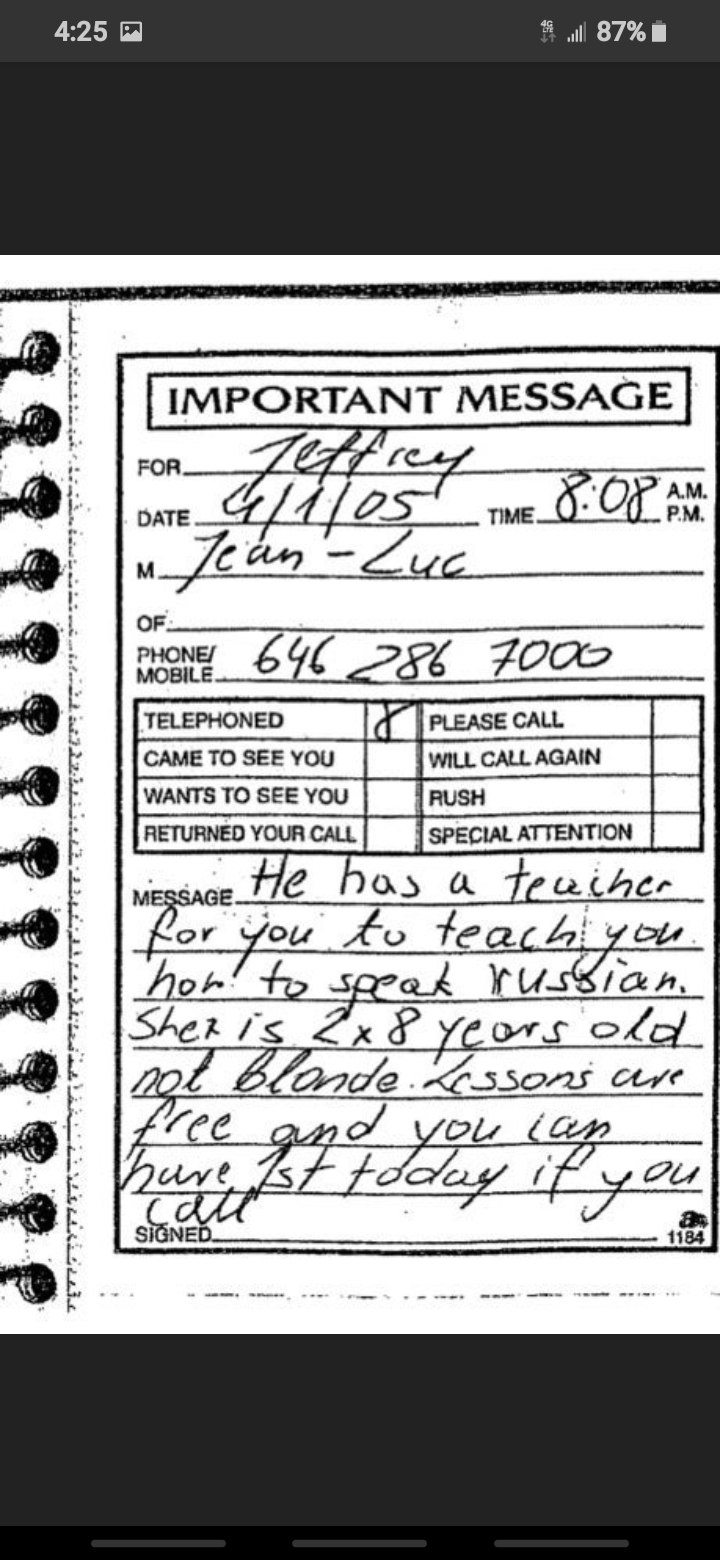 4:25 4G LTE 87%
IMPORTANT MESSAGE
FOR Jeffrey
DATE 4/1/05 TIME 8:08 A.M. P.M.
M Jean-Luc
OF
PHONE/MOBILE 646 286 7000
TELEPHONED PLEASE CALL
CAME TO SEE YOU WILL CALL AGAIN
WANTS TO SEE YOU RUSH
RETURNED YOUR CALL SPECIAL ATTENTION
MESSAGE He has a teacher
for you to teach you
how to speak russian.
is 2x8 years old
not blonde. Lessons are
free and you can
have 1st today if you
call
SIGNED
1184